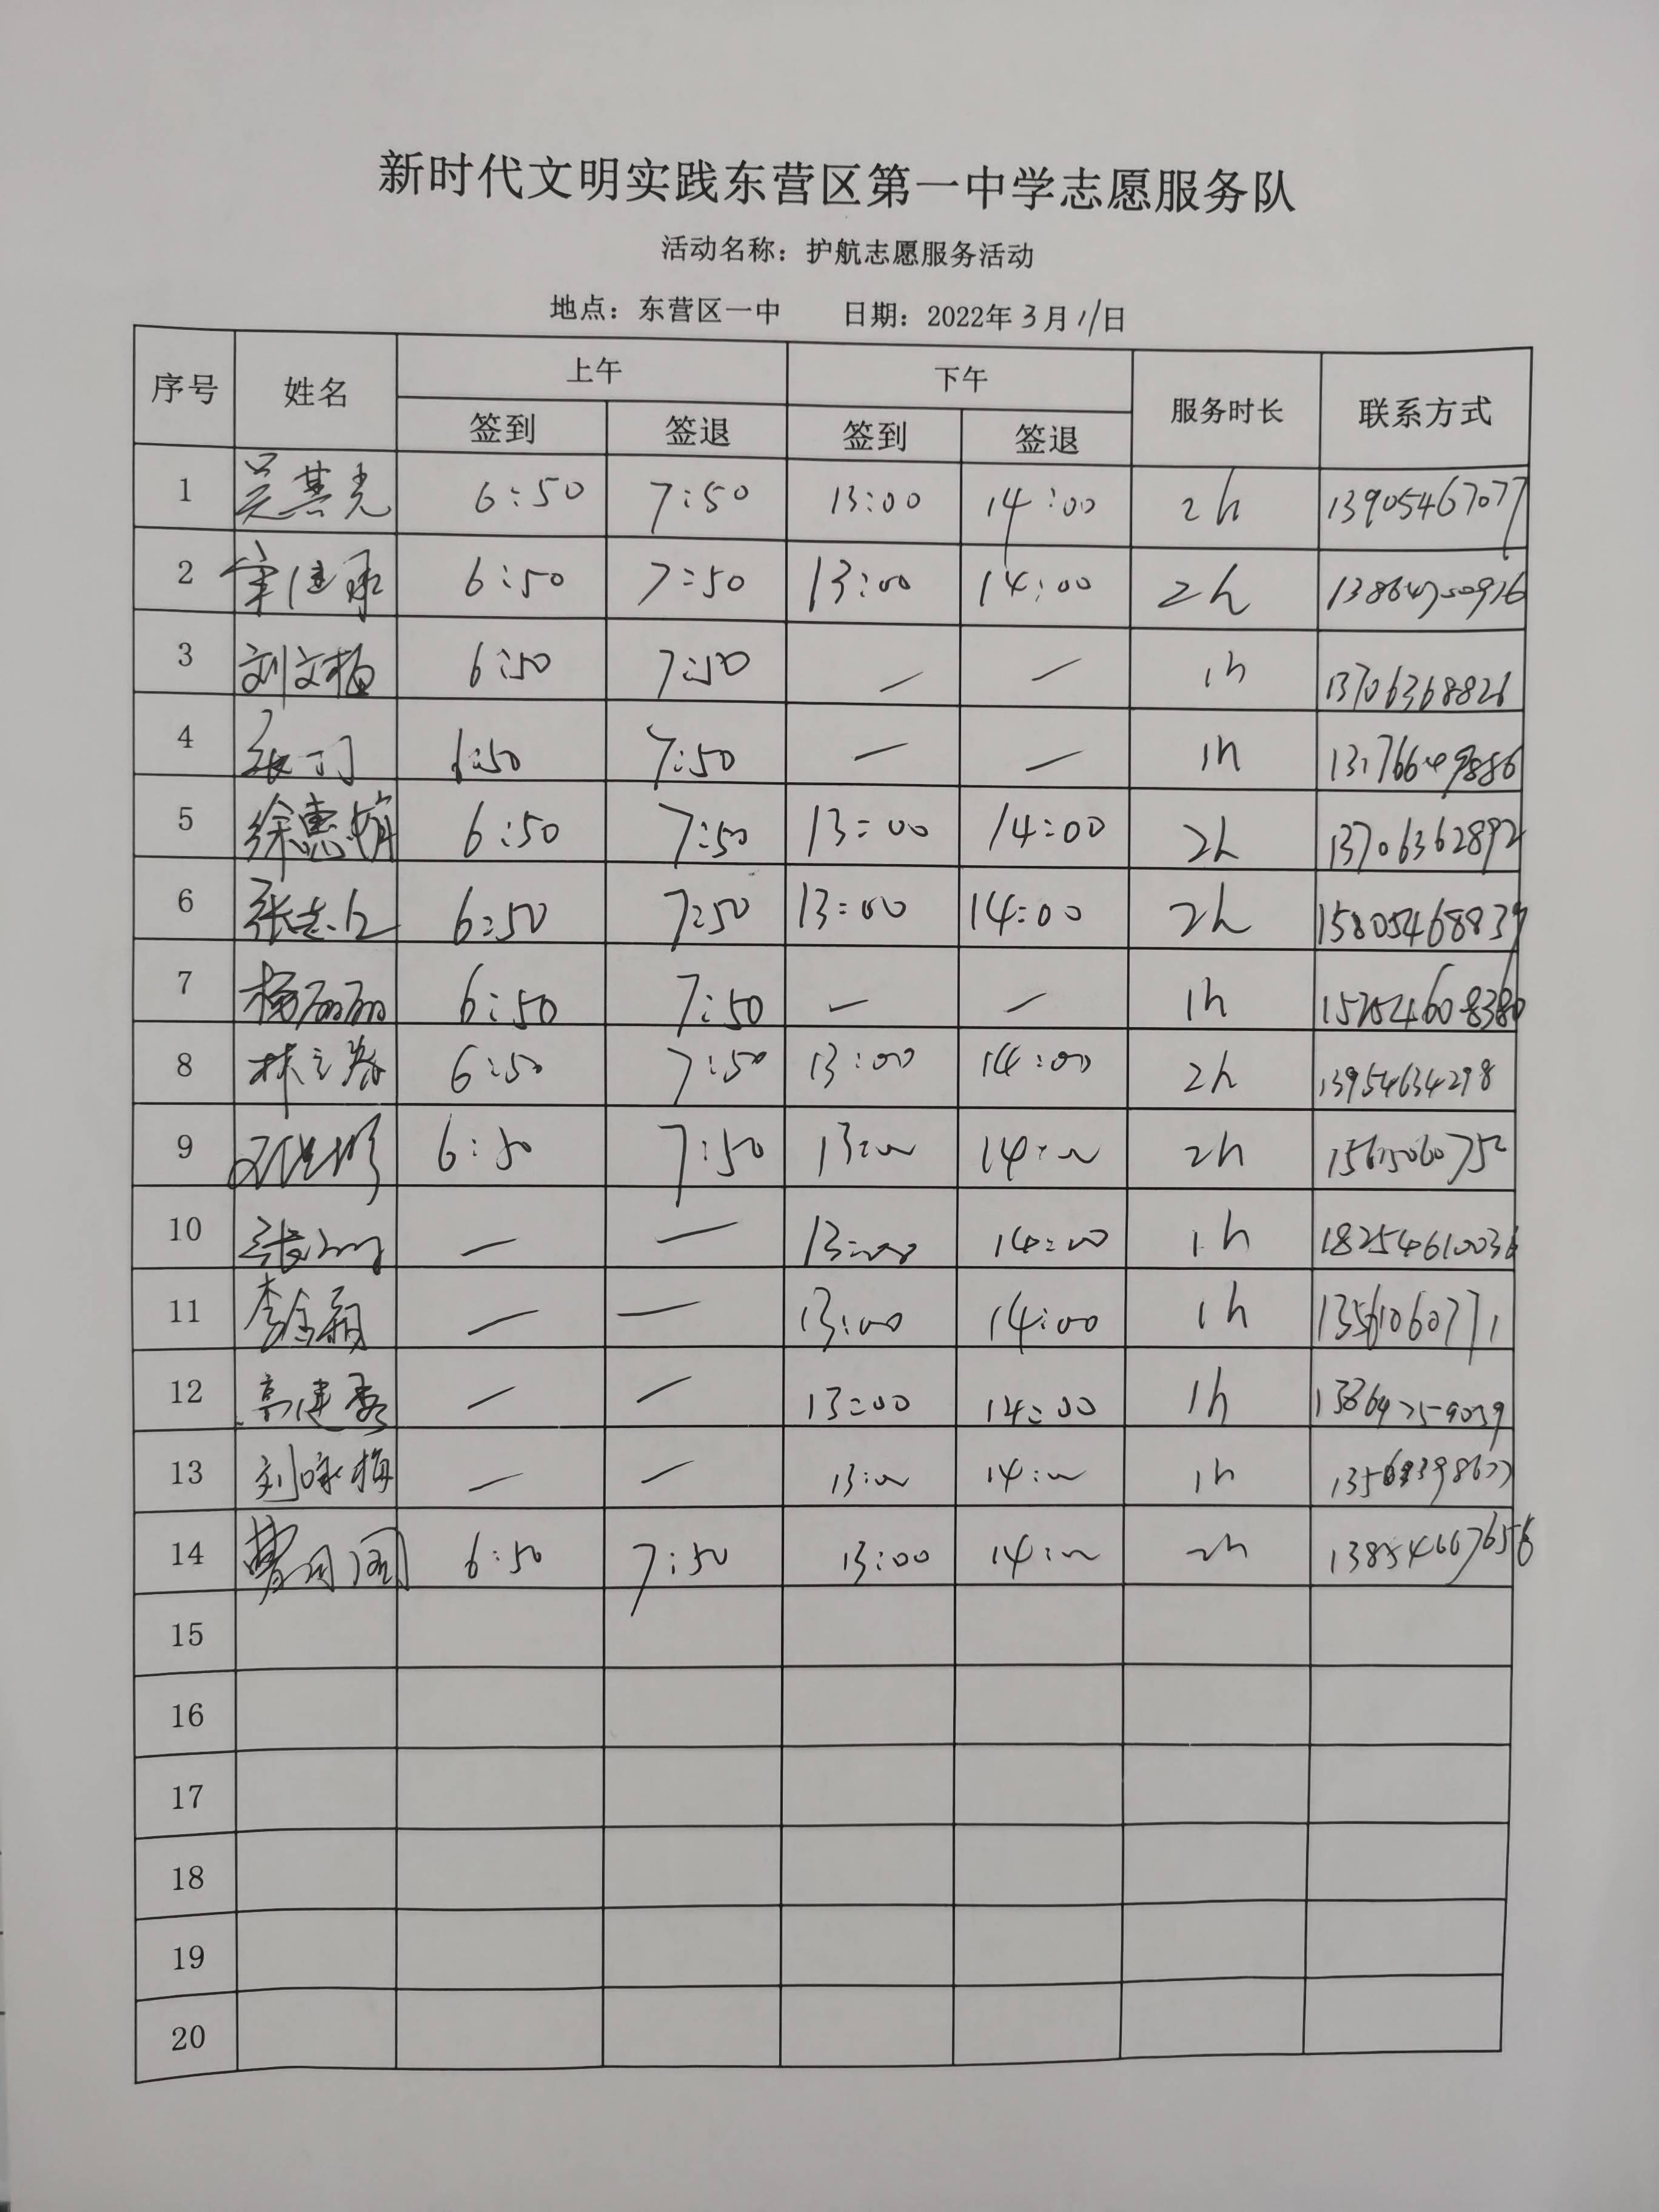 新时代文明实践东营区第一中学志愿服务队
活动名称：护航志愿服务活动
地点：东营区一中 日期：2022年3月11日
序号 姓名 上午 下午 服务时长 联系方式
签到 签退 签到 签退
1 吴其光 6:50 7:50 13:00 14:00 2h 13905467077
2 6:50 7:50 13:00 14:00 2h
3 刘文梅 6:50 7:50 — — 1h 13706368826
4 6:50 7:50 — — 1h 13176649886
5 徐惠娟 6:50 7:50 13:00 14:00 2h 13706362892
6 张志仁 6:50 7:50 13:00 14:00 2h 15805468839
7 杨丽丽 6:50 7:50 — — 1h
8 6:50 7:50 13:00 14:00 2h 13954634298
9 6:50 7:50 13:00 14:00 2h
10 — — 13:00 14:00 1h 18254610036
11 — — 13:00 14:00 1h
12 高建秀 — — 13:00 14:00 1h
13 刘咏梅 — — 13:00 14:00 1h
14 6:50 7:50 13:00 14:00 2h 13854667656
15
16
17
18
19
20